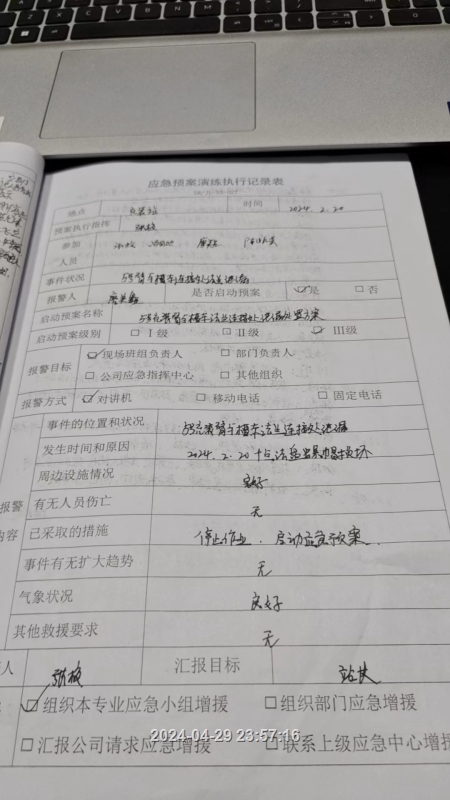 应急预案演练执行记录表
地点 充装站 时间 2024.2.20
预案执行指挥 张校
参加
人员
事件状况 5#充装臂与槽车连接处泄漏
报警人 是否启动预案 ☑是 □否
启动预案名称 5#充装臂与槽车法兰连接处泄漏处置方案
启动预案级别 □Ⅰ级 □Ⅱ级 ☑Ⅲ级
报警目标 ☑现场班组负责人 □部门负责人
□公司应急指挥中心 □其他组织
报警方式 ☑对讲机 □移动电话 □固定电话
事件的位置和状况 5#充装臂与槽车法兰连接处泄漏
发生时间和原因 2024.2.20
周边设施情况 良好
报警 有无人员伤亡 无
内容 已采取的措施 停止作业、启动应急预案
事件有无扩大趋势 无
气象状况 良好
其他救援要求 无
人 张校 汇报目标 站长
☑组织本专业应急小组增援 □组织部门应急增援
□汇报公司请求应急增援 □联系上级应急中心增援
2024-04-29 23:57:16